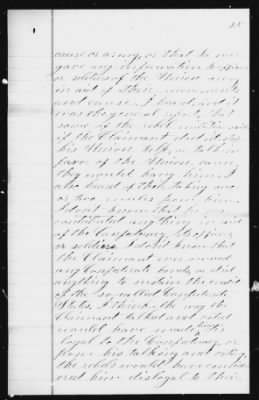 25
cause or army, or that he ever
gave any information to officers
or soldiers of the Union army
in aid of their movements
and cause. I heard, and it
was the general report that
some of the rebel soldiers said
if the Claimant didn't stop
his Union talk, or talk in
favor of the Union cause,
they would hang him. I
also heard of their taking one
or two mules from him.
I don't know that he ever
contributed anything in aid
of the Confederacy, its officers,
or soldiers. I don't know that
the Claimant ever owned
any Confederate bonds, or did
anything to sustain the credit
of the so called Confederate
States. I think the way the
Claimant talked and voted
would have made him
loyal to the Confederacy or
from his talking and voting,
the rebels would have consid-
ered him disloyal to their